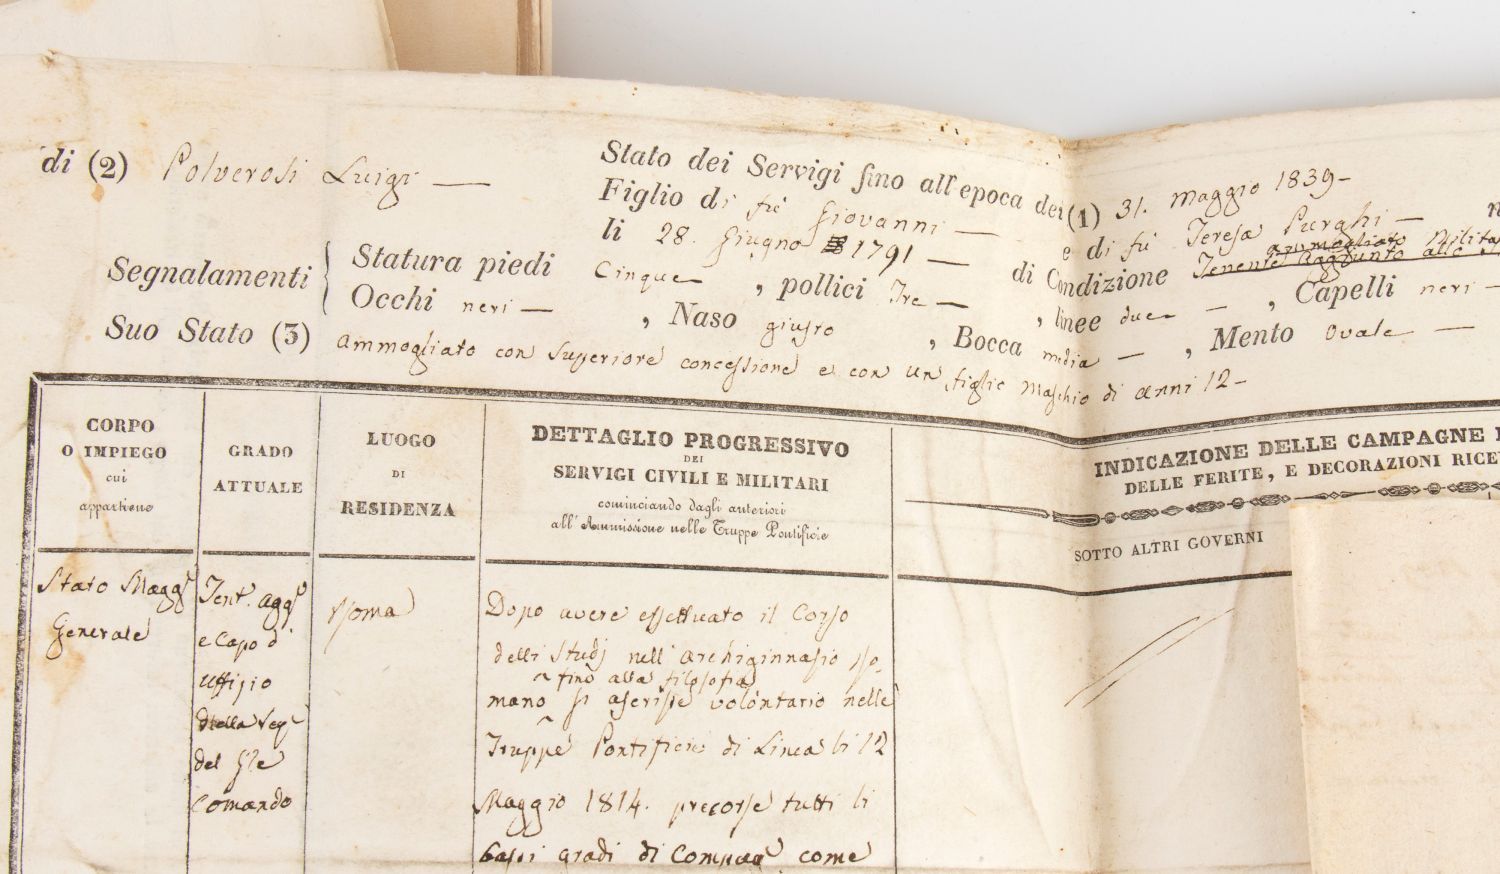 di (2) Polverosi Luigi —
Stato dei Servigi fino all'epoca dei (1) 31. Maggio 1839 –
Figlio di fù Giovanni — e di fù Teresa
li 28. Giugno 1791 — di Condizione ammogliato
Tenente Aggiunto allo
Segnalamenti { Statura piedi Cinque , pollici Tre — , linee due — , Capelli neri –
Occhi neri — , Naso giusto , Bocca media — , Mento Ovale —
Suo Stato (3) Ammogliato con Superiore concessione e con un figlio Maschio di anni 12 –
CORPO
O IMPIEGO
cui
appartiene
GRADO
ATTUALE
LUOGO
DI
RESIDENZA
DETTAGLIO PROGRESSIVO
DEI
SERVIGI CIVILI E MILITARI
cominciando dagli anteriori
all'Ammissione nelle Truppe Pontificie
INDICAZIONE DELLE CAMPAGNE
DELLE FERITE, E DECORAZIONI RICE
SOTTO ALTRI GOVERNI
Stato Magge
Generale
Tent. Agg.
e Capo d'
Uffizio
della Seg.
del Gle
Comando
Roma
Dopo avere effettuato il Corso
delli Studj nell'Archiginnasio Ro-
fino alla filosofia
mano si ascrisse volontario nelle
Truppe Pontificie di Linea li 12
Maggio 1814. precorse tutti li
bassi gradi di Compag. come